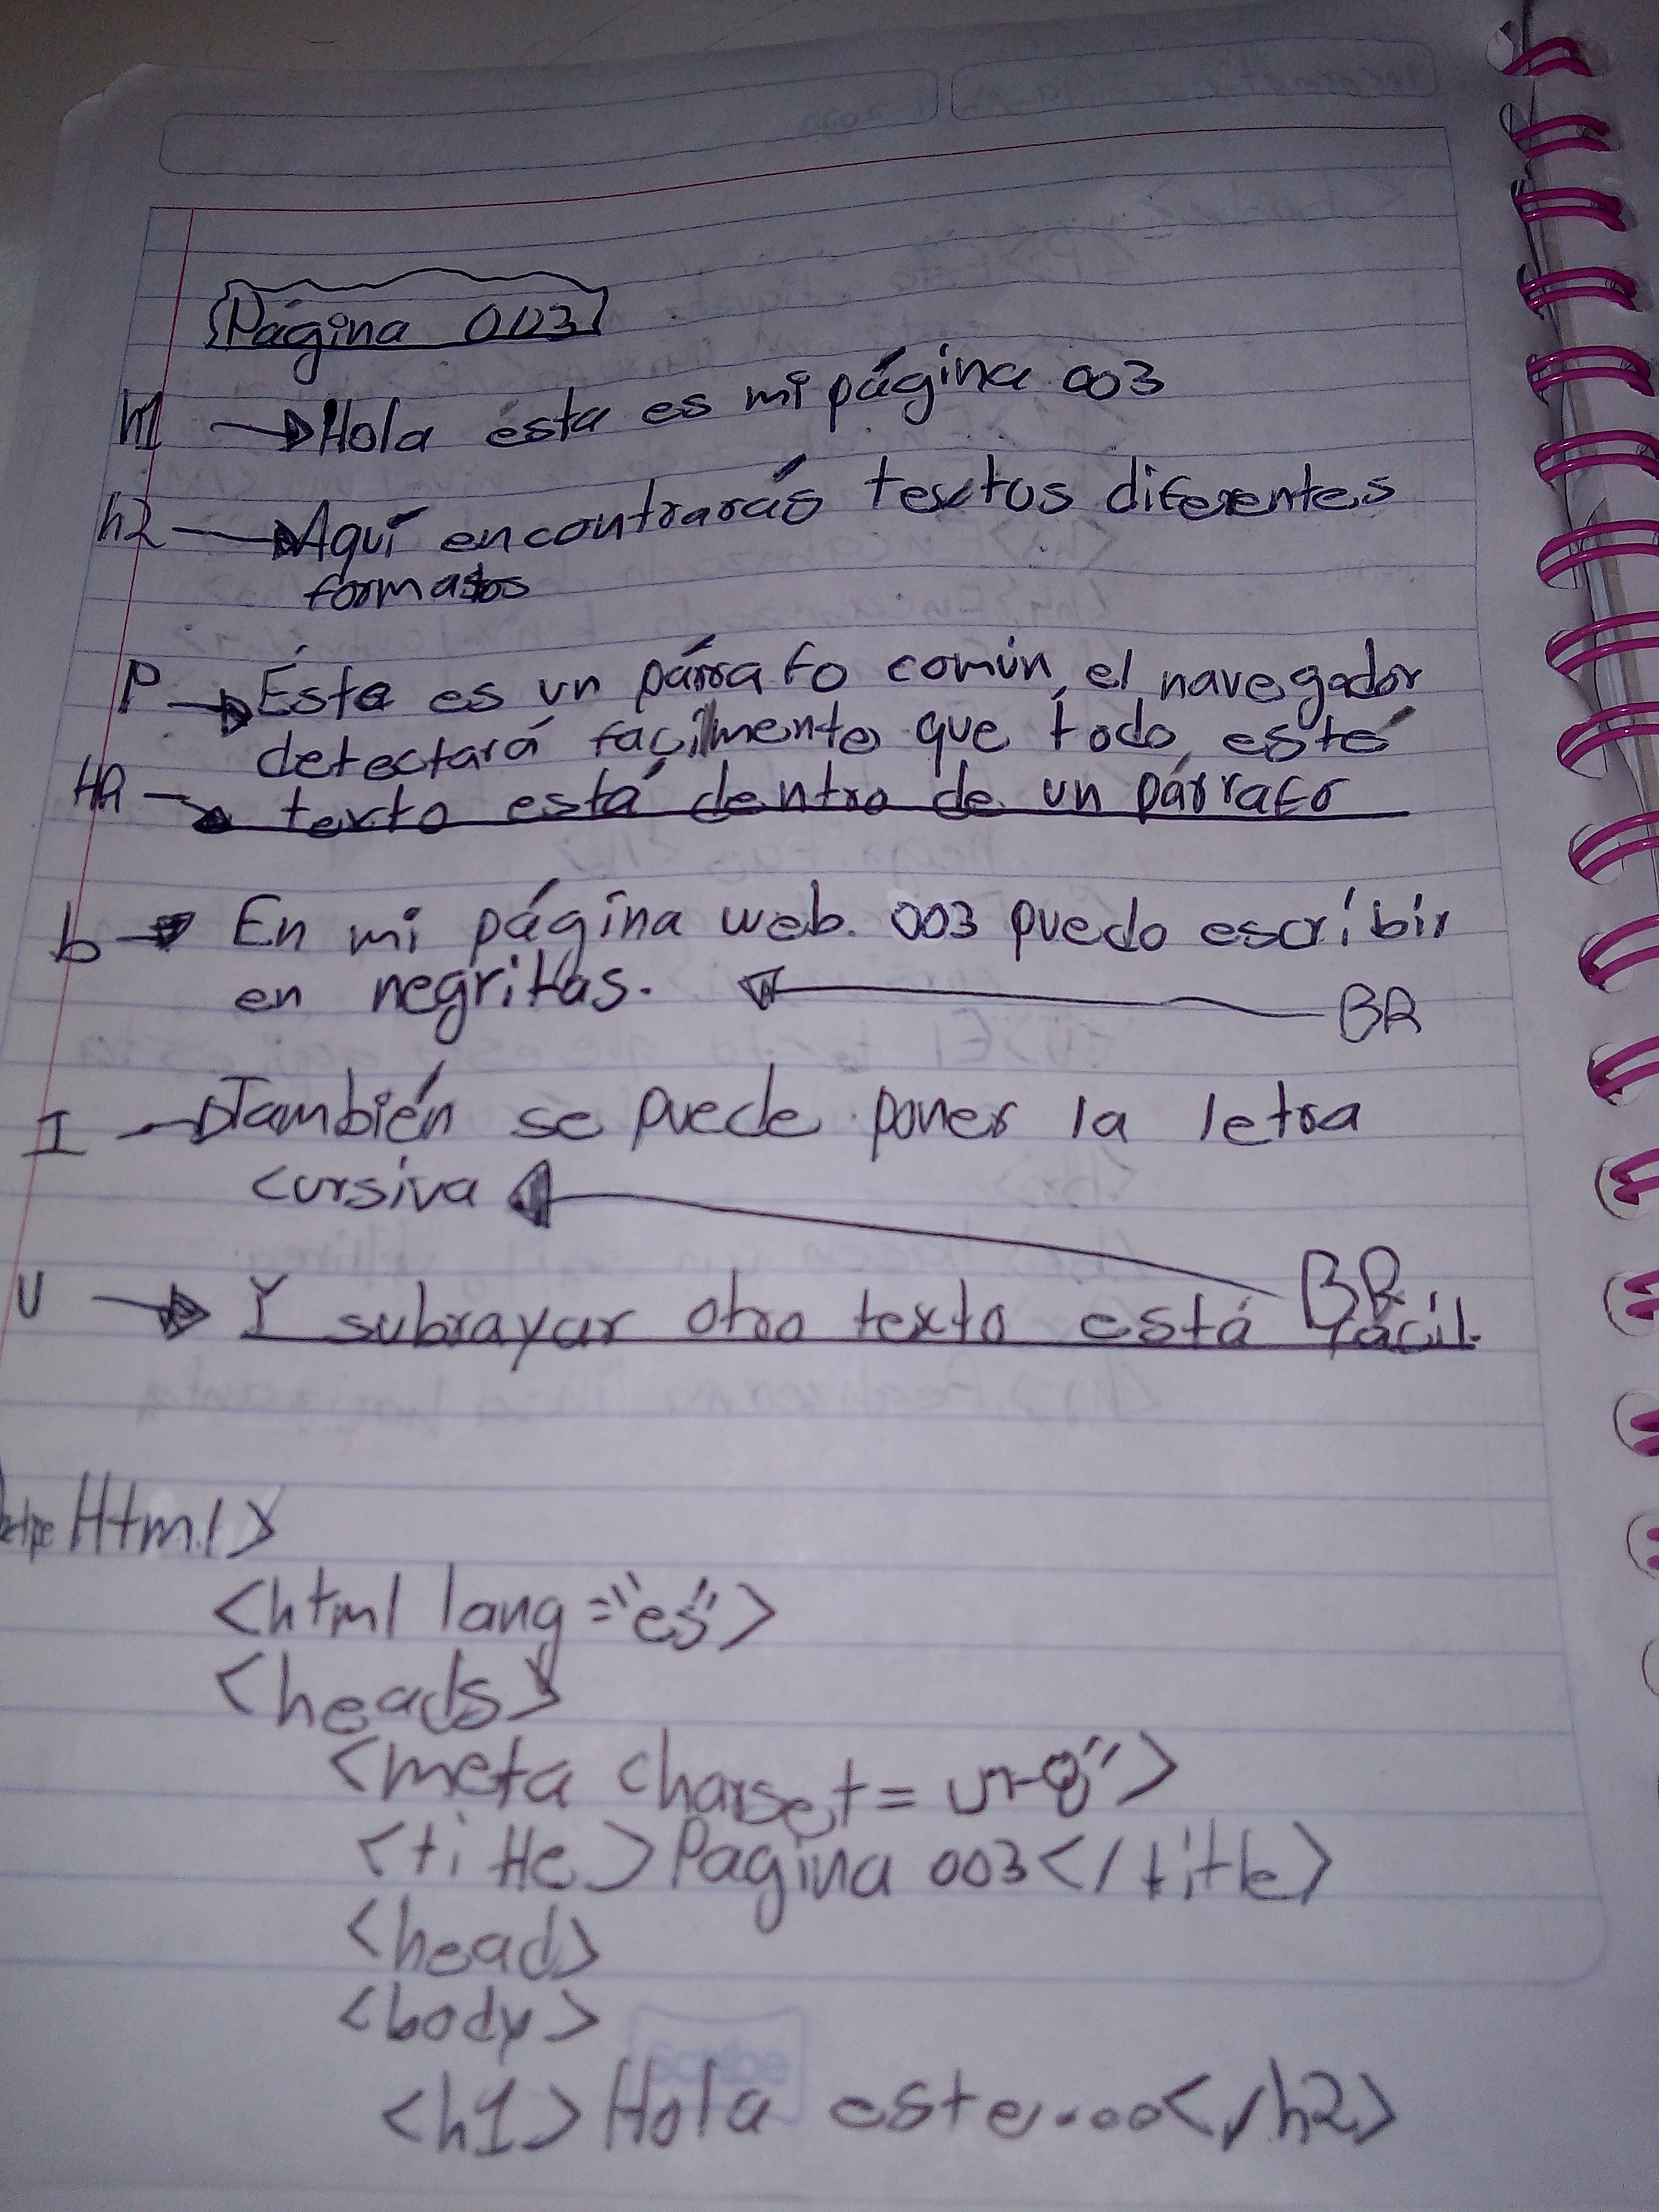 Página 003
h1 Hola ésta es mi página 003
h2 Aquí encontrarás textos diferentes
formatos
P Éste es un párrafo común, el navegador
detectará facilmente que todo esté
HR texto está dentro de un párrafo
b En mi página web. 003 puedo escribir
en negritas. BR
I También se puede poner la letra
cursiva BR
U Y subrayar otro texto está fácil.
Html>
<html lang="es">
<heads>
<meta charset= ">
<title>Pagina 003</title>
<head>
<body>
<h1>Hola este....</h2>
Scribe